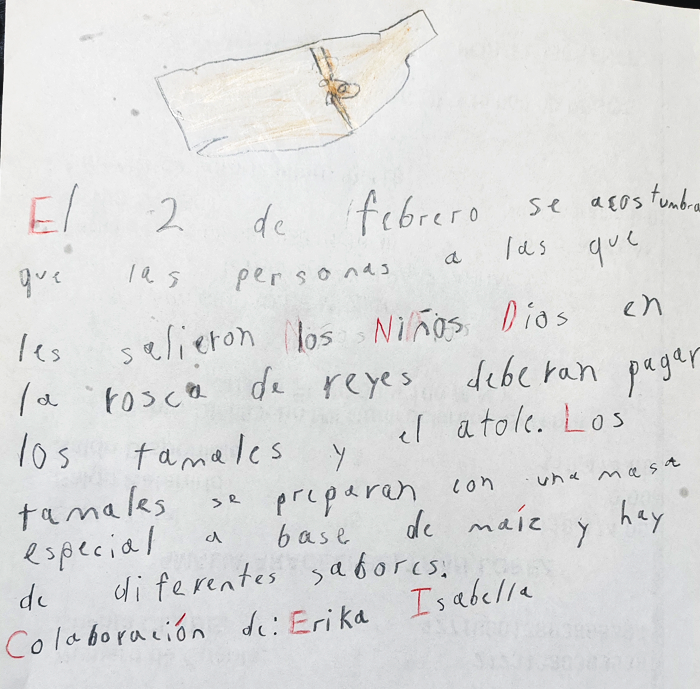 El 2 de febrero se acostumbra
que las personas a las que
les salieron los Niños Dios en
la rosca de reyes deberan pagar
los tamales y el atole. Los
tamales se preparan con una masa
especial a base de maíz y hay
de diferentes sabores.
Colaboración de: Erika Isabella